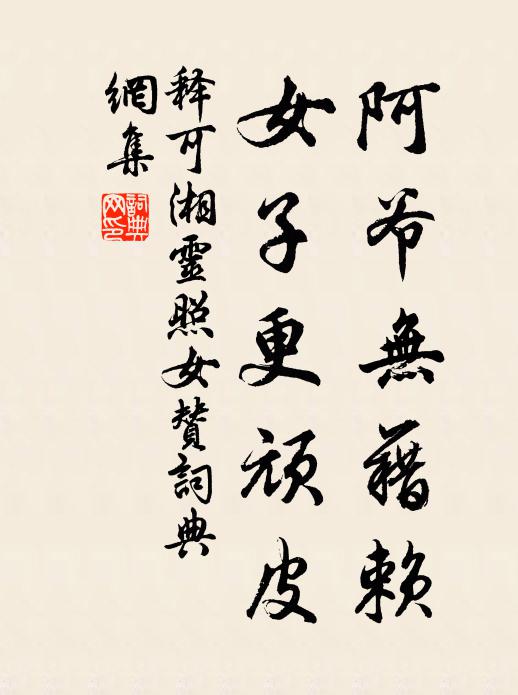 阿爷無藉賴
女子更頑皮
释可湘靈照女贊詞典
網集
詞典
网印